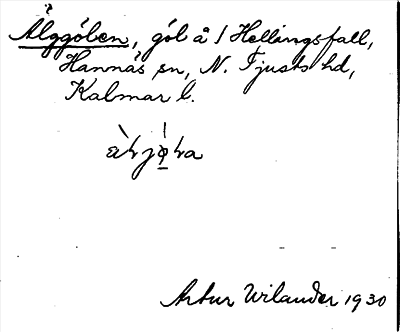 Älggölen, göl å 1 Hellingsfall,
Hannäs sn, N. Tjusts hd,
Kalmar l.
Artur Wilander 1930